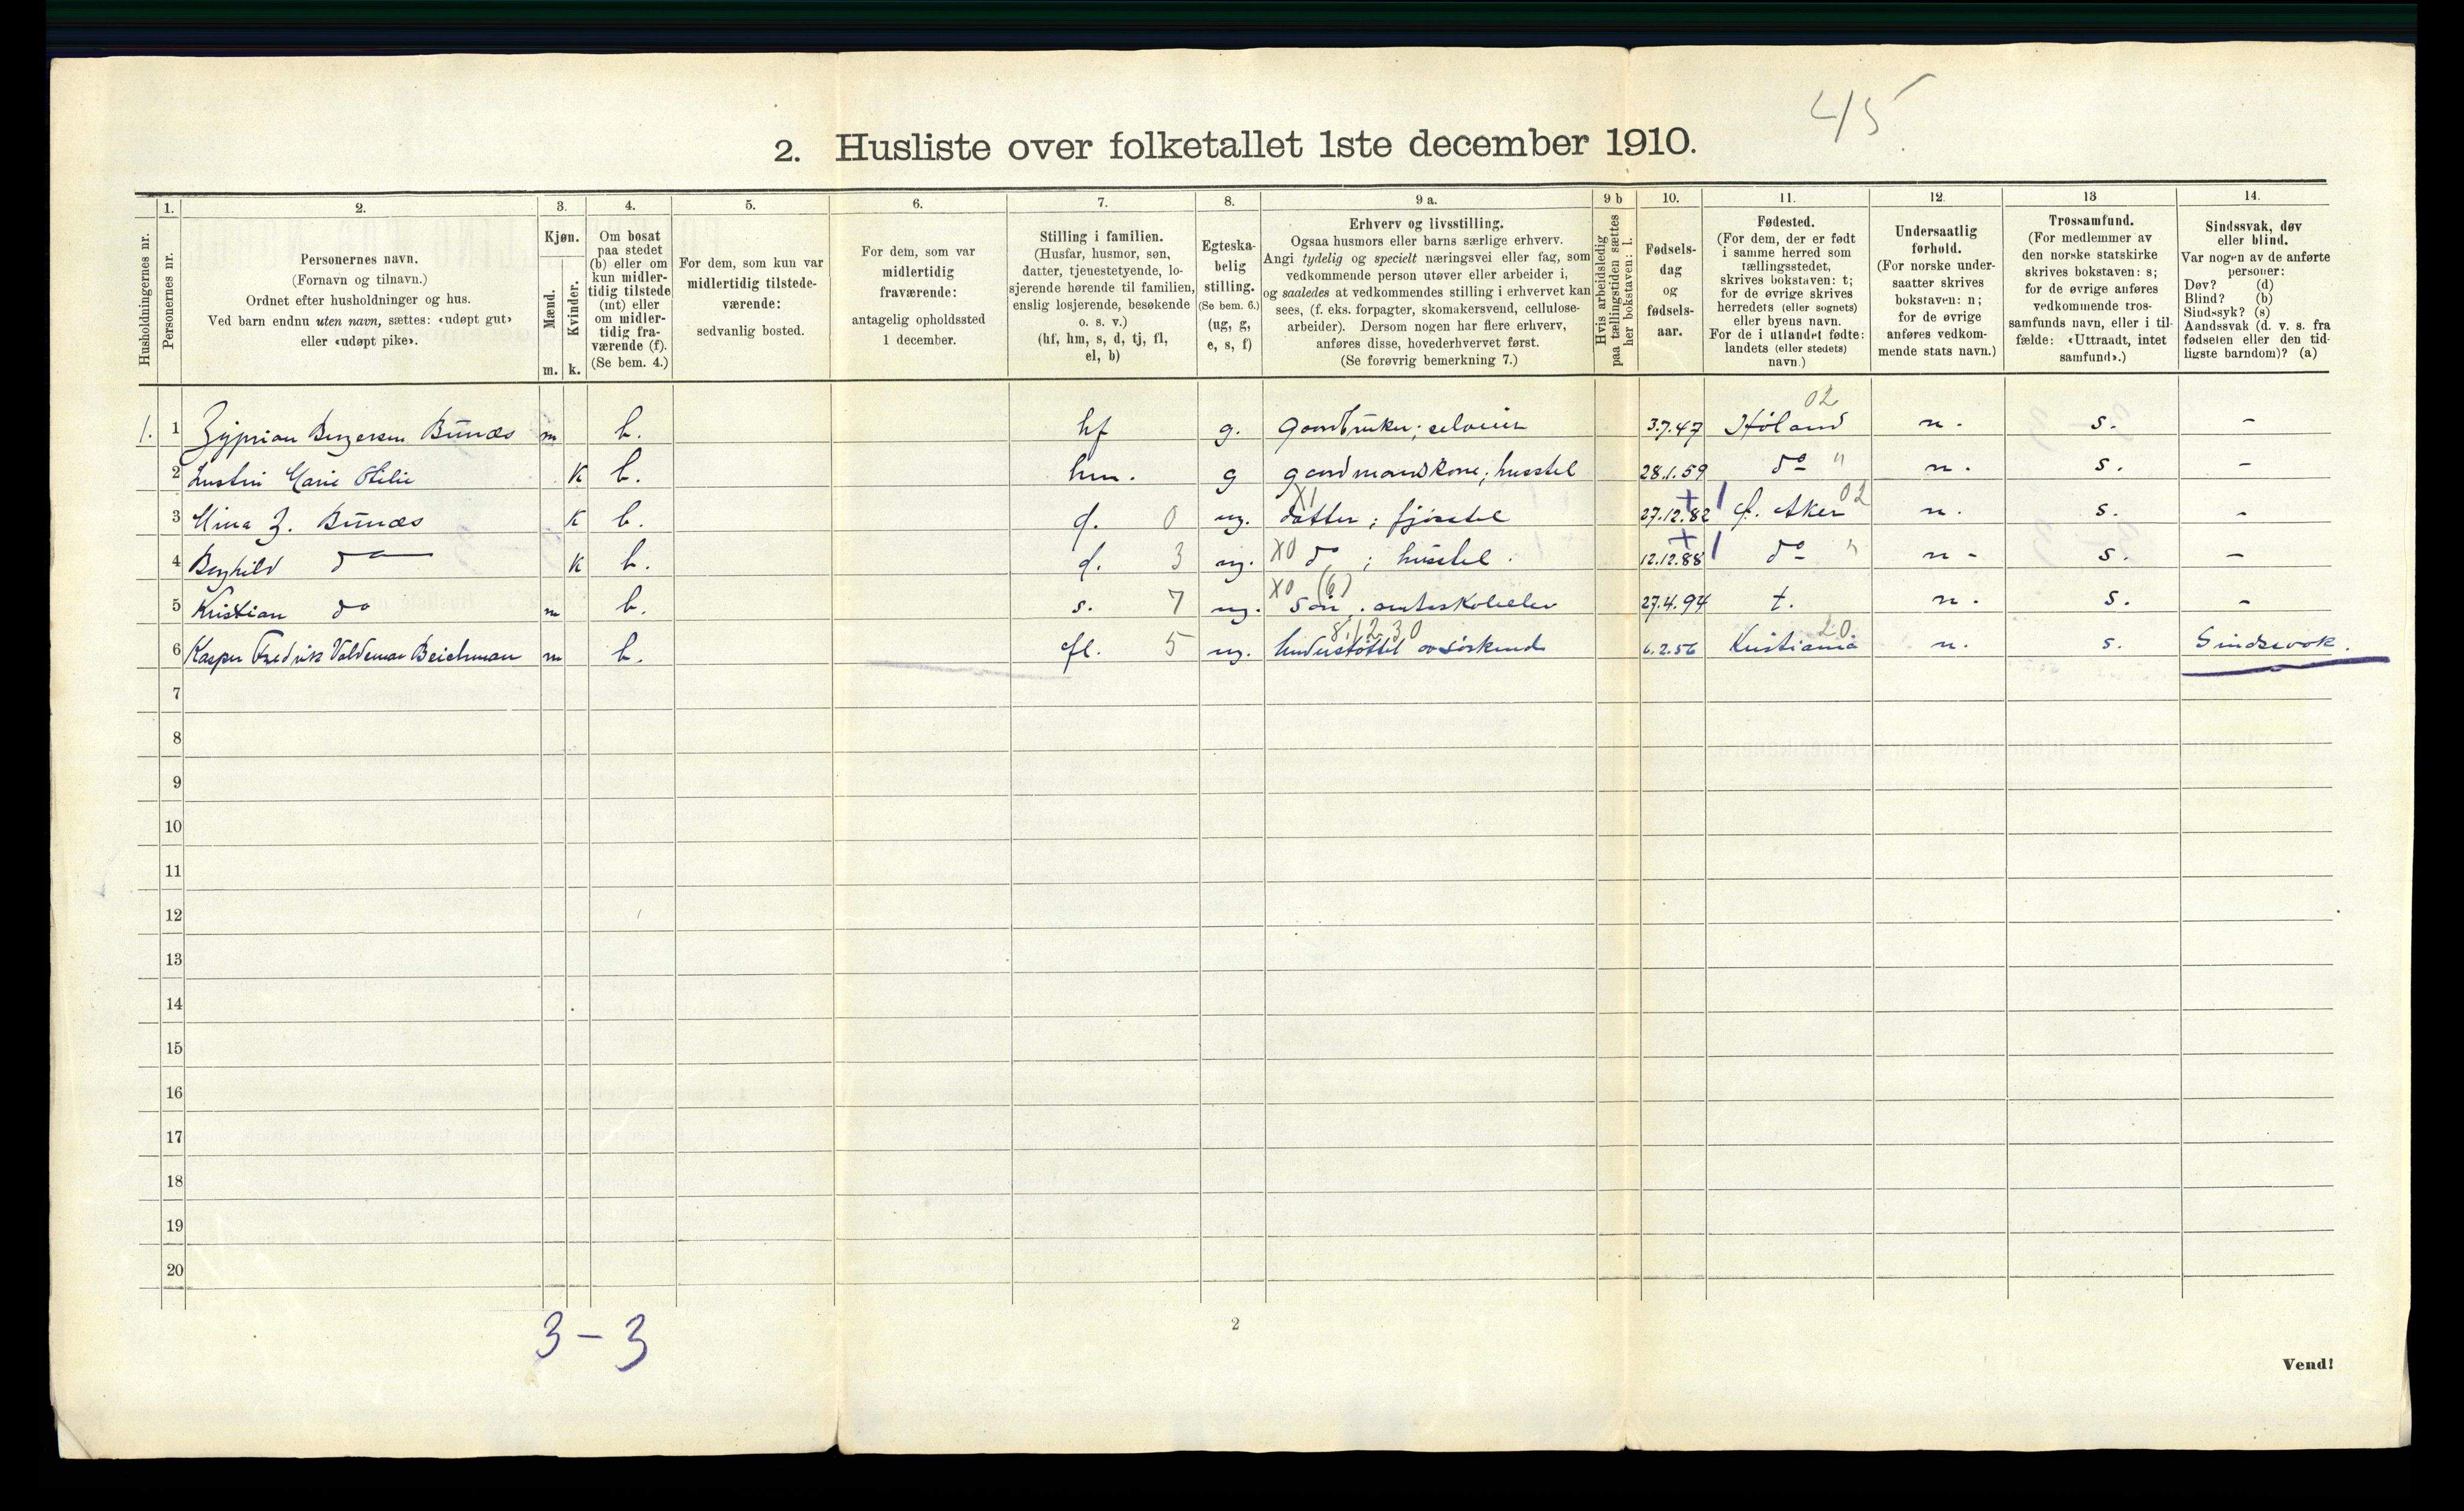 45
2. Husliste over folketallet 1ste december 1910.
Husholdningernes nr.
1.
Personernes nr.
2.
Personernes navn.
(Fornavn og tilnavn.)
Ordnet efter husholdninger og hus.
Ved barn endnu uten navn, sættes: «udøpt gut»
eller «udøpt pike».
3.
Kjøn.
Mænd.
Kvinder.
m. k.
4.
Om bosat
paa stedet
(b) eller om
kun midler-
tidig tilstede
(mt) eller
om midler-
tidig fra-
værende (f).
(Se bem. 4.)
5.
For dem, som kun var
midlertidig tilstede-
værende:
sedvanlig bosted.
6.
For dem, som var
midlertidig
fraværende:
antagelig opholdssted
1 december.
7.
Stilling i familien.
(Husfar, husmor, søn,
datter, tjenestetyende, lo-
sjerende hørende til familien,
enslig losjerende, besøkende
o. s. v.)
(hf, hm, s, d, tj, fl,
el, b)
8.
Egteska-
belig
stilling.
(Se bem. 6.)
(ug, g,
e, s, f)
9 a.
Erhverv og livsstilling.
Ogsaa husmors eller barns særlige erhverv.
Angi tydelig og specielt næringsvei eller fag, som
vedkommende person utøver eller arbeider i,
og saaledes at vedkommendes stilling i erhvervet kan
sees, (f. eks. forpagter, skomakersvend, cellulose-
arbeider). Dersom nogen har flere erhverv,
anføres disse, hovederhvervet først.
(Se forøvrig bemerkning 7.)
9 b
Hvis arbeidsledig
paa tællingstiden sættes
her bokstaven: l.
10.
Fødsels-
dag
og
fødsels-
aar.
11.
Fødested.
(For dem, der er født
i samme herred som
tællingsstedet,
skrives bokstaven: t;
for de øvrige skrives
herredets (eller sognets)
eller byens navn.
For de i utlandet fødte:
landets (eller stedets)
navn.)
12.
Undersaatlig
forhold.
(For norske under-
saatter skrives
bokstaven: n;
for de øvrige
anføres vedkom-
mende stats navn.)
13
Trossamfund.
(For medlemmer av
den norske statskirke
skrives bokstaven: s;
for de øvrige anføres
vedkommende tros-
samfunds navn, eller i til-
fælde: «Uttraadt, intet
samfund».)
14.
Sindssvak, døv
eller blind.
Var nogen av de anførte
personer:
Døv? (d)
Blind? (b)
Sindssyk? (s)
Aandssvak (d. v. s. fra
fødselen eller den tid-
ligste barndom)? (a)
02
1. 1 Zyprian Bergersen Bunæs m b. hf g. gaardbruker; selveier 3.7.47 Høland n. s. –
2 Marie Otilie K b. hm. g gaardmandskone; husstel 28.1.59 do " n. s. –
X1 + 1 02
3 Mina Z. Bunæs K b. d. 0 ug. datter; fjøsstel 27.12.82 f. Aker n. s. –
4 Borghild do K b. d. 3 ug. X0 do; husstel. + 12.12.88 1 do " n – s. –
X0 (6)
5 Kristian do m b. s. 7 ug. søn, amtsskoleelev 27.4.94 t. n. s. –
8.12.30 20
6 Kasper Fredrik Valdemar Beichman m b. fl. 5 ug. Understøttet av søskende 6.2.56 Kristiania n. s. Sindssvak.
7
8
9
10
11
12
13
14
15
16
17
18
19
20
3 – 3
2
Vend!